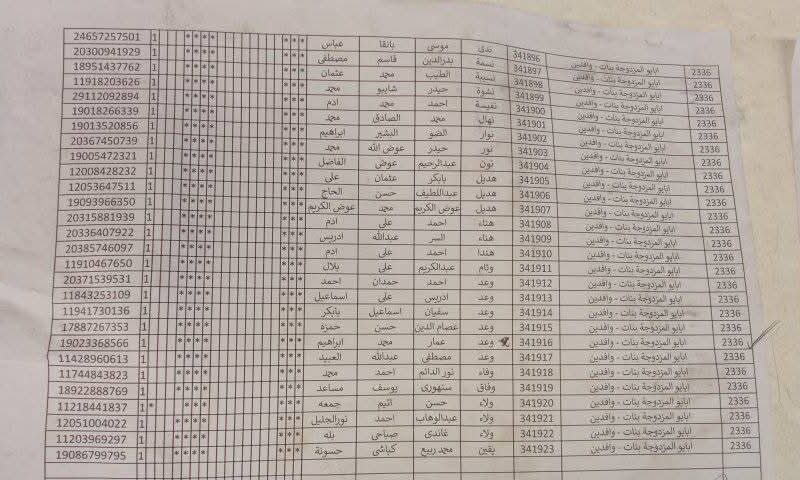 2336 ابايو المزدوجة بنات - وافدين 341896 ندى موسى بانقا عباس *** **** 1 24657257501
2336 ابايو المزدوجة بنات - وافدين 341897 نسمة بدرالدين قاسم مصطفى *** **** 1 20300941929
2336 ابايو المزدوجة بنات - وافدين 341898 نسيبة الطيب محمد عثمان *** **** 1 18951437762
2336 ابايو المزدوجة بنات - وافدين 341899 نشوة حيدر شايبو محمد *** **** 1 11918203626
2336 ابايو المزدوجة بنات - وافدين 341900 نفيسة احمد محمد ادم *** **** 1 29112092894
2336 ابايو المزدوجة بنات - وافدين 341901 نهال محمد الصادق محمد *** **** 1 19018266339
2336 ابايو المزدوجة بنات - وافدين 341902 نوار الضو البشير ابراهيم *** **** 1 19013520856
2336 ابايو المزدوجة بنات - وافدين 341903 نور حيدر عوض الله محمد *** **** 1 20367450739
2336 ابايو المزدوجة بنات - وافدين 341904 نون عبدالرحيم عوض الفاضل *** **** 1 19005472321
2336 ابايو المزدوجة بنات - وافدين 341905 هديل بابكر عثمان على *** **** 1 12008428232
2336 ابايو المزدوجة بنات - وافدين 341906 هديل عبداللطيف حسن الحاج *** **** 1 12053647511
2336 ابايو المزدوجة بنات - وافدين 341907 هديل عوض الكريم محمد عوض الكريم *** **** 1 19093966350
2336 ابايو المزدوجة بنات - وافدين 341908 هناء احمد على ادم *** **** 1 20315881939
2336 ابايو المزدوجة بنات - وافدين 341909 هناء السر عبدالله ادريس *** **** 1 20336407922
2336 ابايو المزدوجة بنات - وافدين 341910 هندا احمد على ادم *** **** 1 20385746097
2336 ابايو المزدوجة بنات - وافدين 341911 وئام عبدالكريم على بلال *** **** 1 11910467650
2336 ابايو المزدوجة بنات - وافدين 341912 وعد احمد حمدان احمد *** **** 1 20371539531
2336 ابايو المزدوجة بنات - وافدين 341913 وعد ادريس على اسماعيل *** **** 1 11843253109
2336 ابايو المزدوجة بنات - وافدين 341914 وعد سفيان اسماعيل بابكر *** **** 1 11941730136
2336 ابايو المزدوجة بنات - وافدين 341915 وعد عصام الدين حسن حمزه *** **** 1 17887267353
2336 ابايو المزدوجة بنات - وافدين 341916 وعد عمار محمد ابراهيم *** **** 1 19023368566
2336 ابايو المزدوجة بنات - وافدين 341917 وعد مصطفى عبدالله العبيد *** **** 1 11428960613
2336 ابايو المزدوجة بنات - وافدين 341918 وفاء نور الدائم احمد محمد *** **** 1 11744843823
2336 ابايو المزدوجة بنات - وافدين 341919 وفاق سنهورى يوسف مساعد *** **** 1 18922888769
2336 ابايو المزدوجة بنات - وافدين 341920 ولاء حسن اتيم جمعه *** **** * 1 11218441837
2336 ابايو المزدوجة بنات - وافدين 341921 ولاء عبدالوهاب احمد نورالجليل *** **** 1 12051004022
2336 ابايو المزدوجة بنات - وافدين 341922 ولاء غاندى صباحى بله *** **** 1 11203969297
2336 ابايو المزدوجة بنات - وافدين 341923 يقين محمد ربيع كباشى حسونة *** **** 1 19086799795